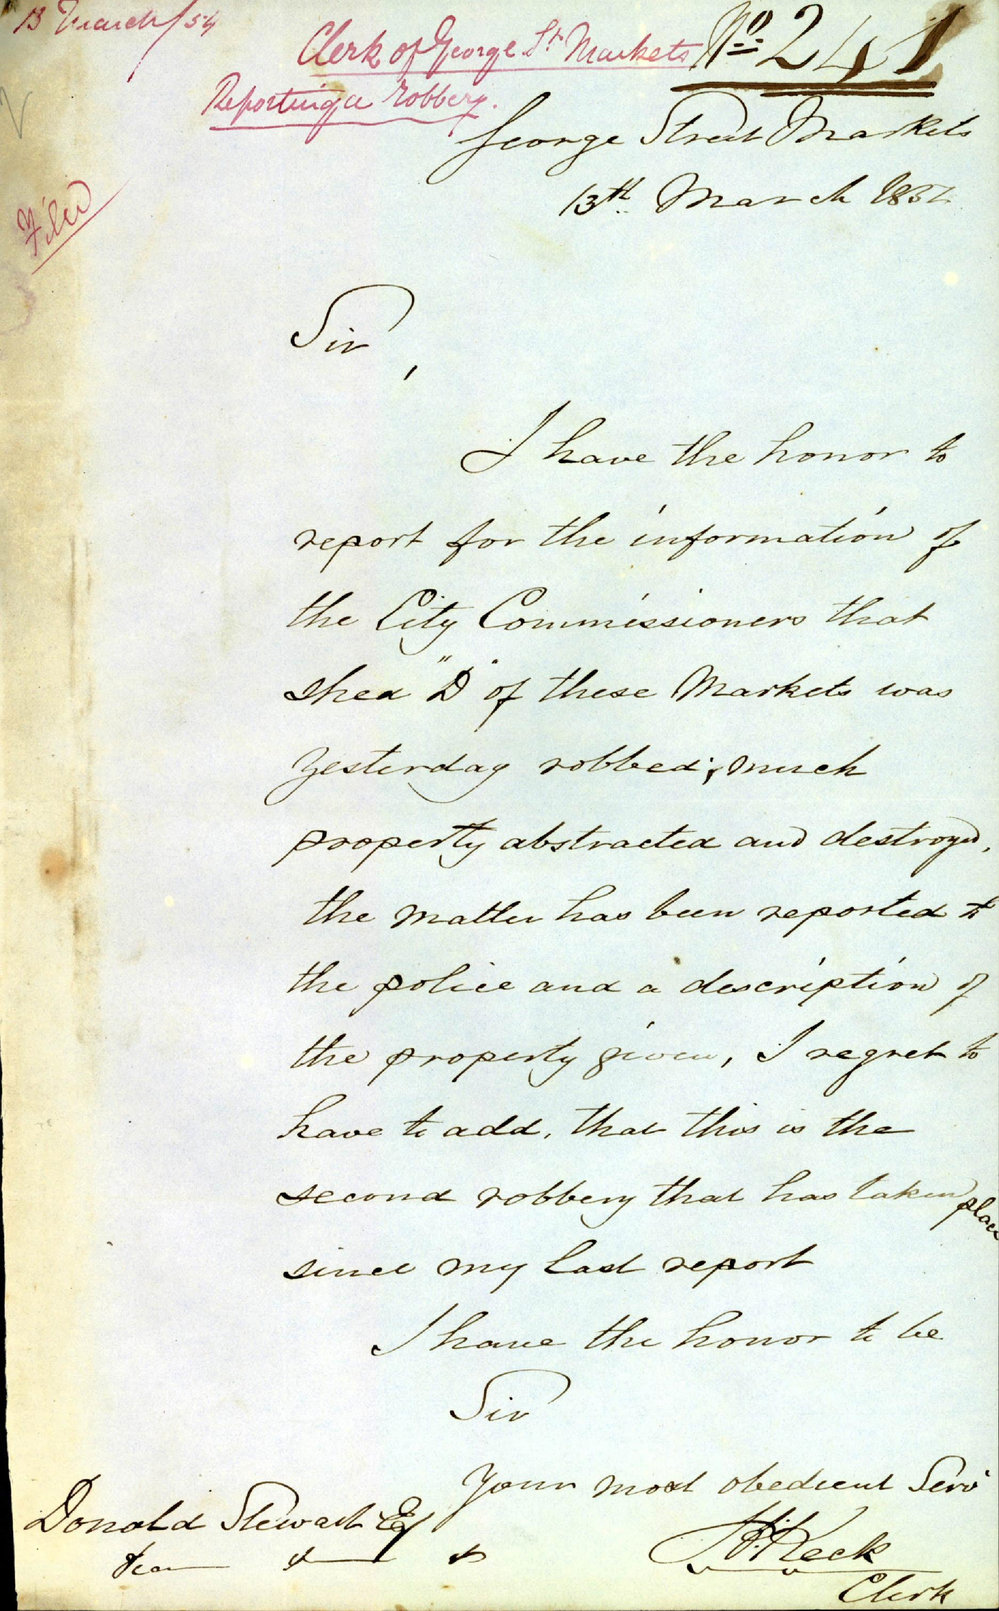 13 March/54
Clerk of George St Markets
Reporting a robbery.
No 241
George Street Markets
13th March 1854
Filed
Sir,
I have the honor to
report for the information of
the City Commissioners that
shed "D" of these Markets was
yesterday robbed; much
property abstracted and destroyed,
the matter has been reported to
the police and a description of
the property given, I regret to
have to add, that this is the
second robbery that has taken place
since my last report
I have the honor to be
Sir
Your most obedient Serv
Keck
Clerk
Donald Stewart Esq